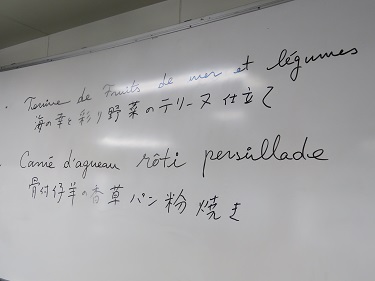 ・Terrine de Fruits de mer et légumes
海の幸と彩り野菜のテリーヌ仕立て
・Carré d'agneau rôti persillade
骨付仔羊の香草パン粉焼き